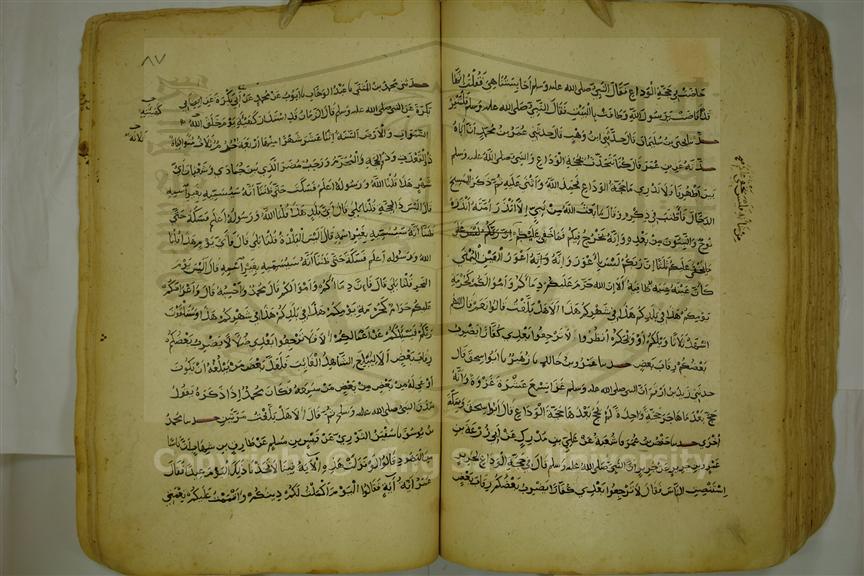 حاضت في حجة الوداع فقال النبي صلى الله عليه وسلم أحابستنا هي فقلت انها
قد افاضت يرسول الله وطافت بالبيت فقال النبي صلى الله عليه وسلم فلتنفر
حدثنا يحيى بن سليمان قال حدثني ابن وهب قال حدثني عمر بن محمد أن أباه
حدثه عن بن عمر قال كنا نتحدث بحجة الوداع والنبي صلى الله عليه وسلم
بين أظهرنا ولا ندري ما حجة الوداع فحمد الله واثنى عليه ثم ذكر المسيح
الدجال فأطنب في ذكره وقال ما بعث الله من نبي إلا أنذر امته أنذره
نوح والنبيون من بعده وإنه يخرج فيكم فما خفي عليكم من شأنه فليس
يخفى عليكم إن ربكم ليس بأعور وإنه أعور العين اليمنى
كأن عينه عنبة طافية ألا إن الله حرم عليكم دماءكم وأموالكم كحرمة
يومكم هذا في بلدكم هذا في شهركم هذا ألا هل بلغت قالوا نعم قال اللهم
اشهد ثلاثا ويلكم أو ويحكم أنظروا لا ترجعوا بعدي كفارا يضرب
بعضكم رقاب بعض حدثنا عمرو بن خالد ثنا زهير ثنا ابو اسحق قال
حدثني زيد بن أرقم أن النبي صلى الله عليه وسلم غزا تسع عشرة غزوة وأنه
حج بعد ما هاجر حجة واحدة لم يحج بعدها حجة الوداع قال ابو اسحق وبمكة
أخرى حدثنا حفص بن عمر ثنا شعبة عن علي بن مدرك عن أبي زرعة بن
عمرو بن جرير عن جرير ان النبي صلى الله عليه وسلم قال في حجة الوداع لجرير
استنصت الناس فقال لا ترجعوا بعدي كفارا يضرب بعضكم رقاب بعض
٨٧
حدثني محمد بن المثنى ثنا عبد الوهاب ثنا ايوب عن محمد عن ابن أبي بكرة عن ابي
بكرة عن النبي صلى الله عليه وسلم قال الزمان قد استدار كهيئة يوم خلق الله
السموات والأرض السنة اثنا عشر شهرا منها أربعة حرم ثلاث متواليات
ذو القعدة وذو الحجة والمحرم ورجب مضر الذي بين جمادى وشعبان أي
شهر هذا قلنا الله ورسوله اعلم فسكت حتى ظننا أنه سيسميه بغير اسمه
قال أليس ذا الحجة قلنا بلى قال أي بلد هذا قلنا الله ورسوله أعلم فسكت حتى
ظننا أنه سيسميه بغير اسمه قال أليس البلدة قلنا بلى قال فأي يوم هذا قلنا
الله ورسوله اعلم فسكت حتى ظننا أنه سيسميه بغير اسمه قال أليس يوم
النحر قلنا بلى قال فإن دماءكم وأموالكم قال محمد وأحسبه قال وأعراضكم
عليكم حرام كحرمة يومكم هذا في بلدكم هذا في شهركم هذا وستلقون
ربكم فسيسألكم عن أعمالكم ألا فلا ترجعوا بعدي ضلالا يضرب بعضكم
رقاب بعض ألا ليبلغ الشاهد الغائب فلعل بعض من يبلغه ان يكون
أوعى له من بعض من سمعه فكان محمد إذا ذكره يقول
صدق النبي صلى الله عليه وسلم ثم قال ألا هل بلغت مرتين حدثنا محمد
بن يوسف ثنا سفين الثوري عن قيس بن مسلم عن طارق بن شهاب أن أناسا
من اليهود قالوا لو نزلت هذه الآية فينا لاتخذنا ذلك اليوم عيدا فقال
عمر أية آية فقالوا اليوم أكملت لكم دينكم وأتممت عليكم نعمتي
كهيئته
ثلاثة
Copyright © King Saud University